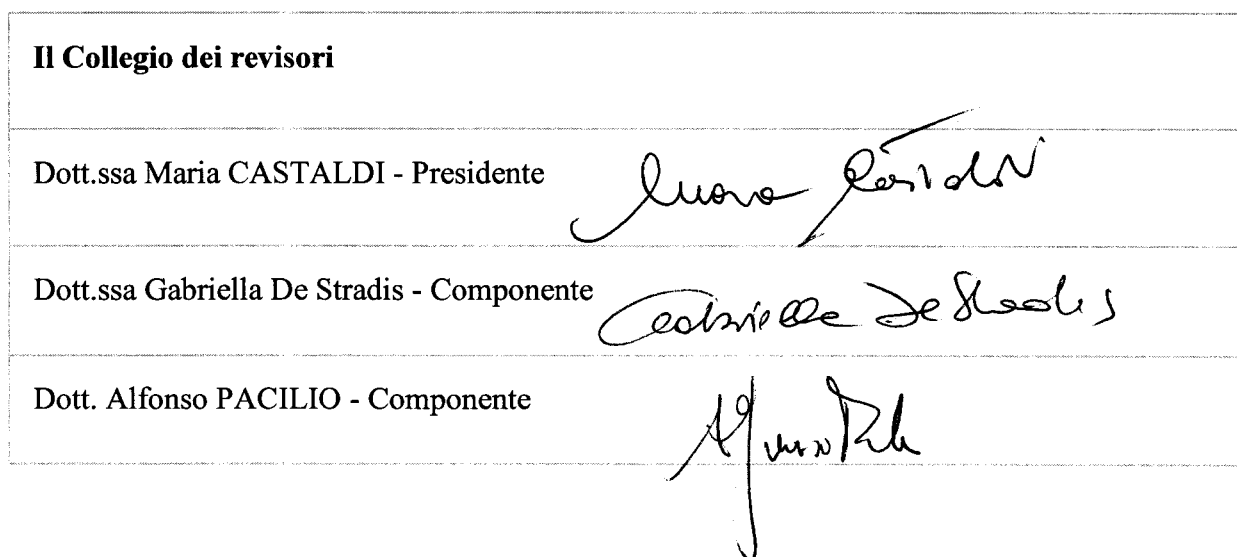 Il Collegio dei revisori
Dott.ssa Maria CASTALDI - Presidente
Dott.ssa Gabriella De Stradis - Componente
Gabriella De Stradis
Dott. Alfonso PACILIO - Componente